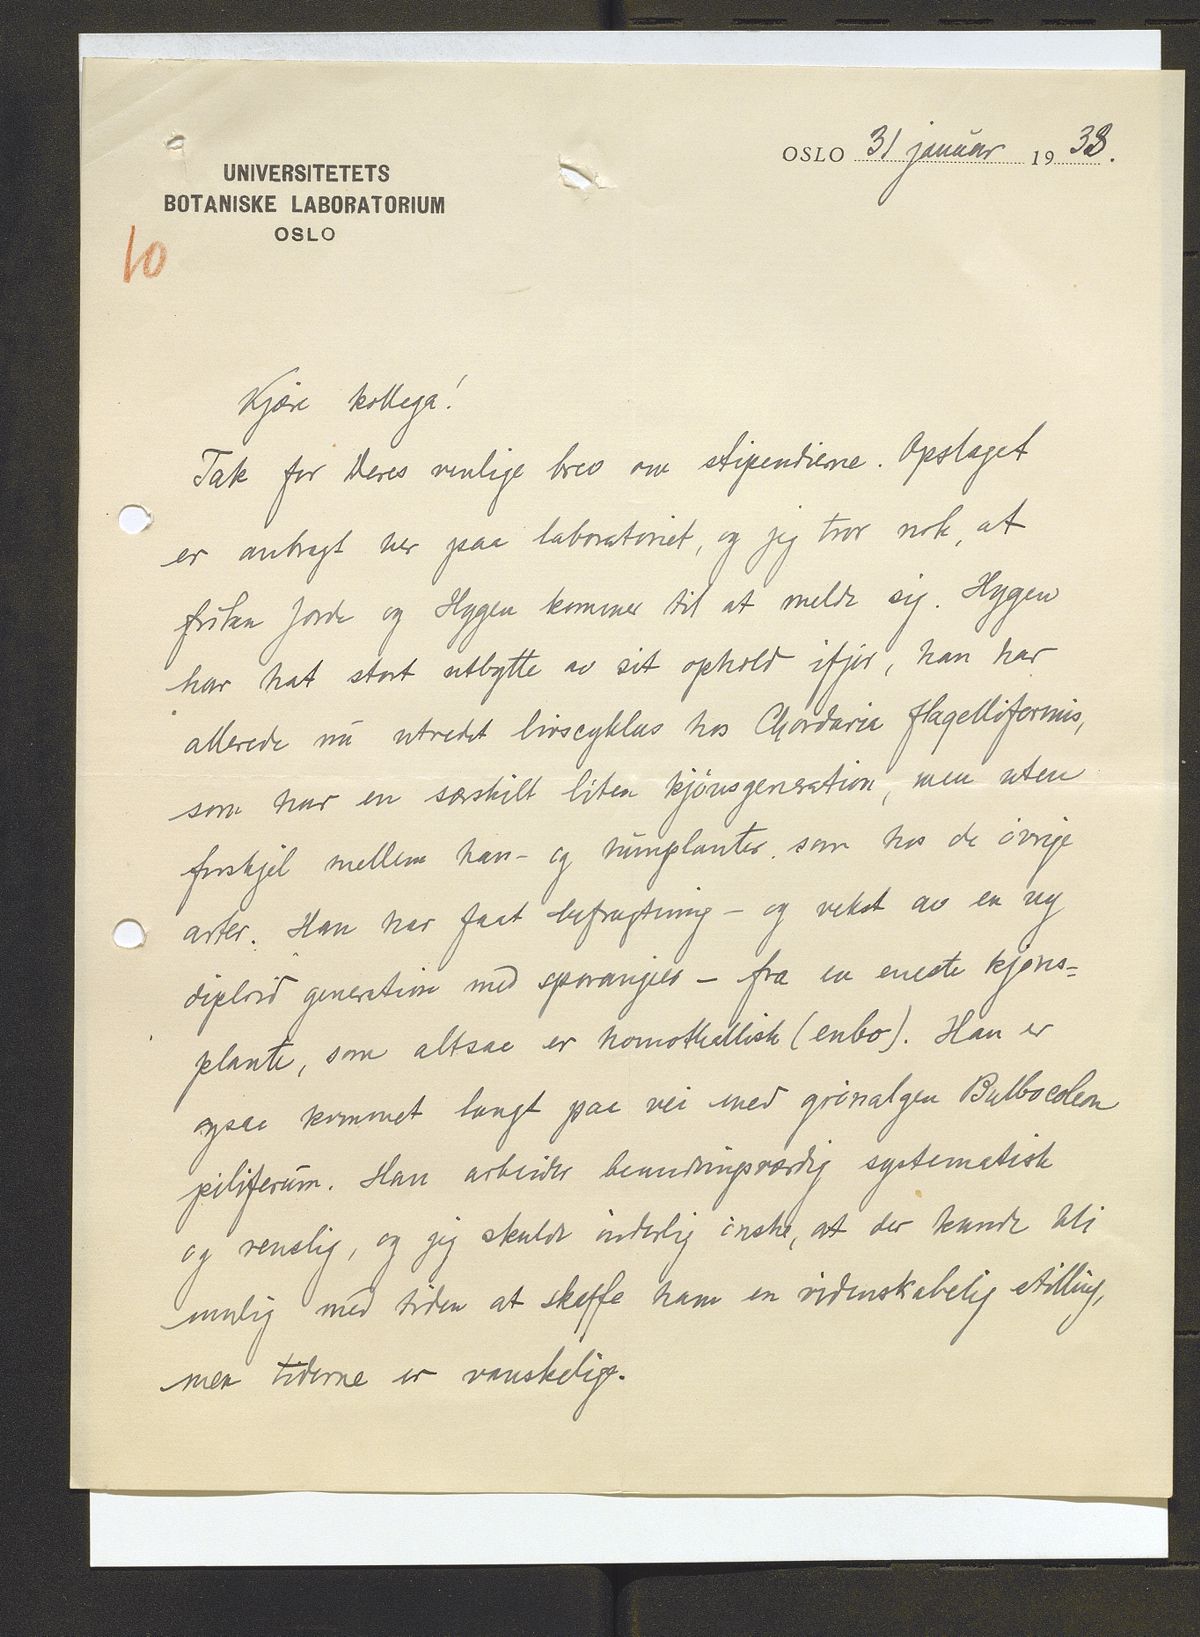 OSLO 31 januar 1933.
UNIVERSITETETS
BOTANISKE LABORATORIUM
OSLO
10
Kjære kollega!
Tak for Deres venlige brev om stipendierne. Opslaget
er anbragt her paa laboratoriet, og jeg tror nok, at
frøken Jorde og Hygen kommer til at melde sig. Hygen
har hat stort utbytte av sit ophold ifjor, han har
allerede nu utredet livscyklus hos Chordaria flagelliformis,
som har en særskilt liten kjønsgeneration, men uten
forskjel mellem han- og hunplanter som hos de øvrige
arter. Han har faat befrugtning - og vekst av en ny
diploid generation med sporangier - fra en eneste kjøns=
plante, som altsaa er homothallisk (enbo). Han er
ogsaa kommet langt paa vei med grønalgen Bulbocoleon
piliferum. Han arbeider beundringsværdig systematisk
og renslig, og jeg skulde inderlig ønske, at der kunde bli
mulig med tiden at skaffe ham en videnskabelig stilling,
men tiderne er vanskelige.